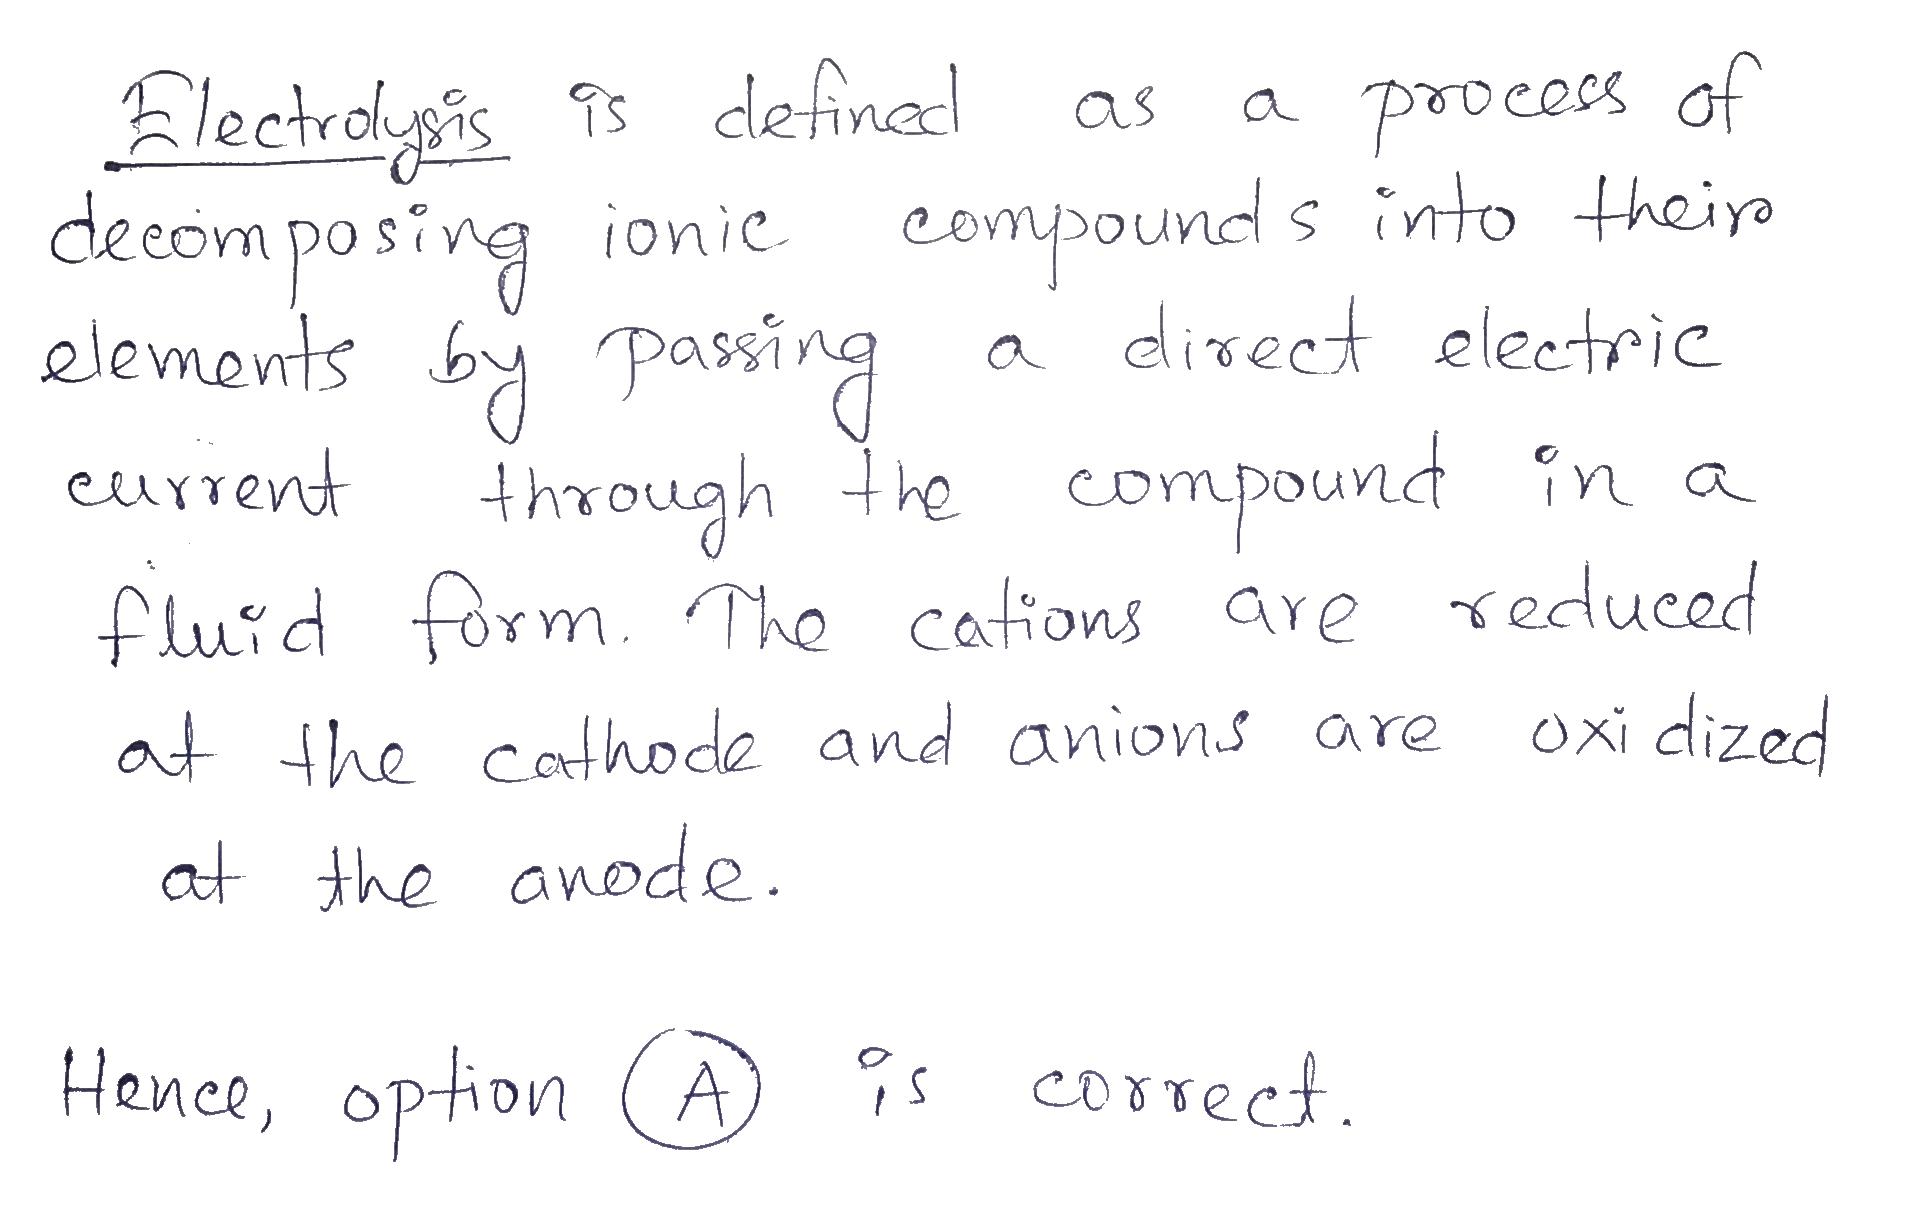 Electrolysis is defined as a process of
decomposing ionic compounds into their
elements by passing a direct electric
current through the compound in a
fluid form. The cations are reduced
at the cathode and anions are oxidized
at the anode.
Hence, option A is correct.